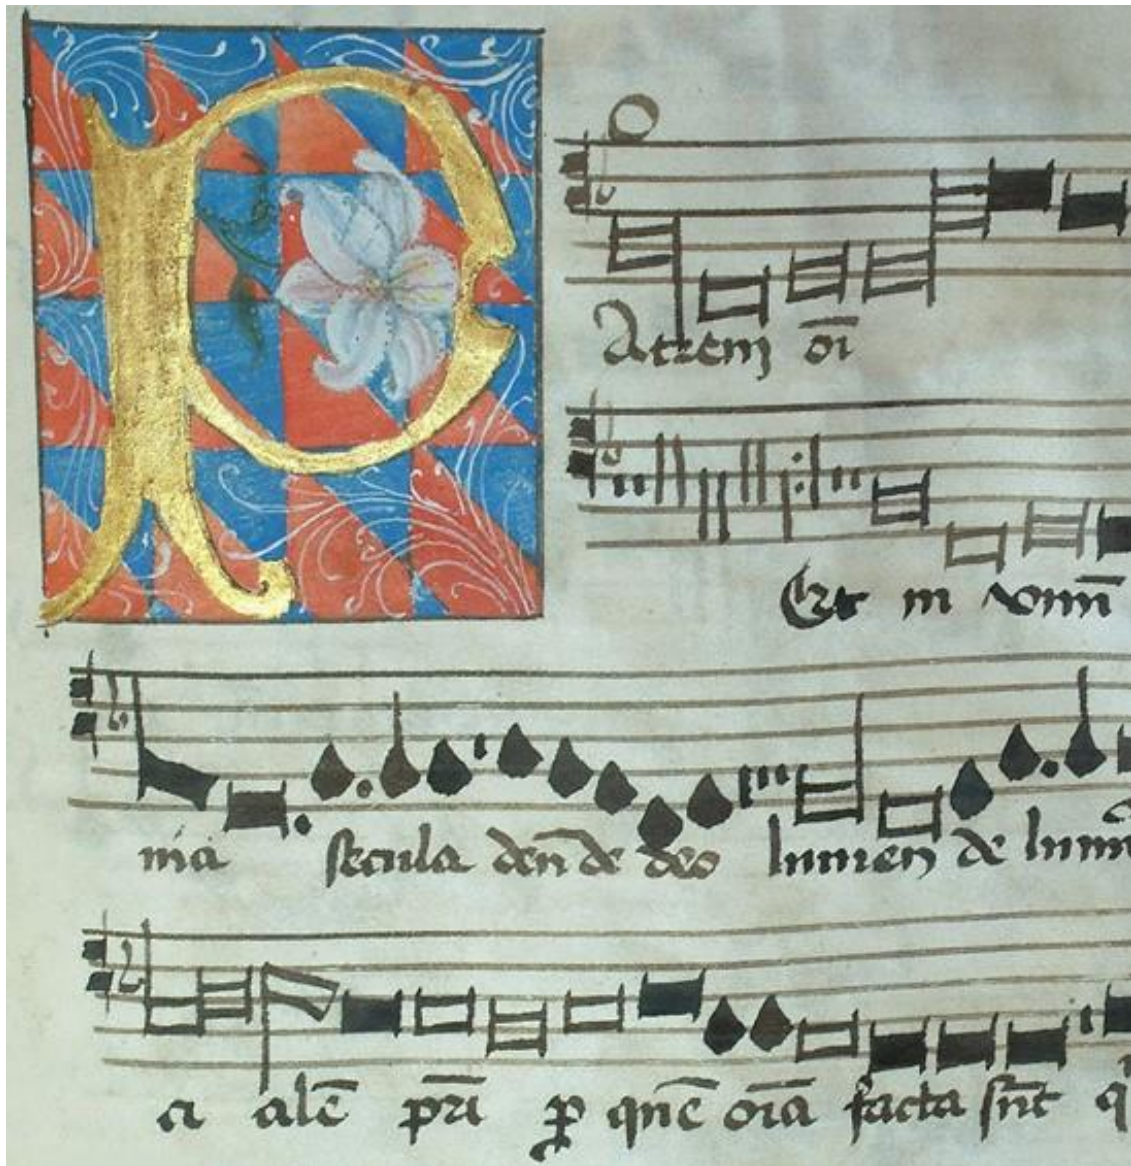 PAtrem oi̅
Et in vnu̅
nia secula deu̅ de deo lumen de lumi
ci alē pr̅i p quē oi̅a facta su̅t q